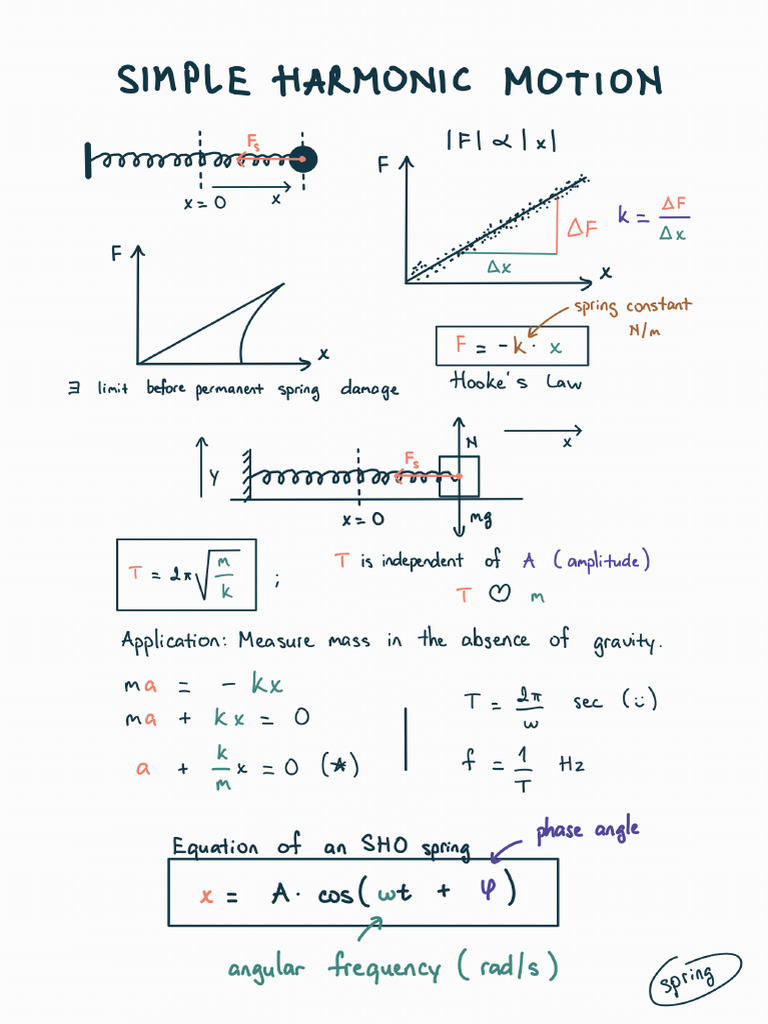 SIMPLE HARMONIC MOTION
Fs
x = 0
x
|F| ∝ |x|
F
ΔF
Δx
x
k = ΔF/Δx
F
x
∃ limit before permanent spring damage
spring constant
N/m
F = -k · x
Hooke's Law
Y
Fs
N
x
x = 0
mg
T = 2π√(m/k) ;
T is independent of A (amplitude)
T ♡ m
Application: Measure mass in the absence of gravity.
ma = - kx
ma + kx = 0
a + k/m x = 0 (*)
T = 2π/ω sec (ü)
f = 1/T Hz
Equation of an SHO spring
phase angle
x = A · cos(ωt + φ)
angular frequency (rad/s)
spring